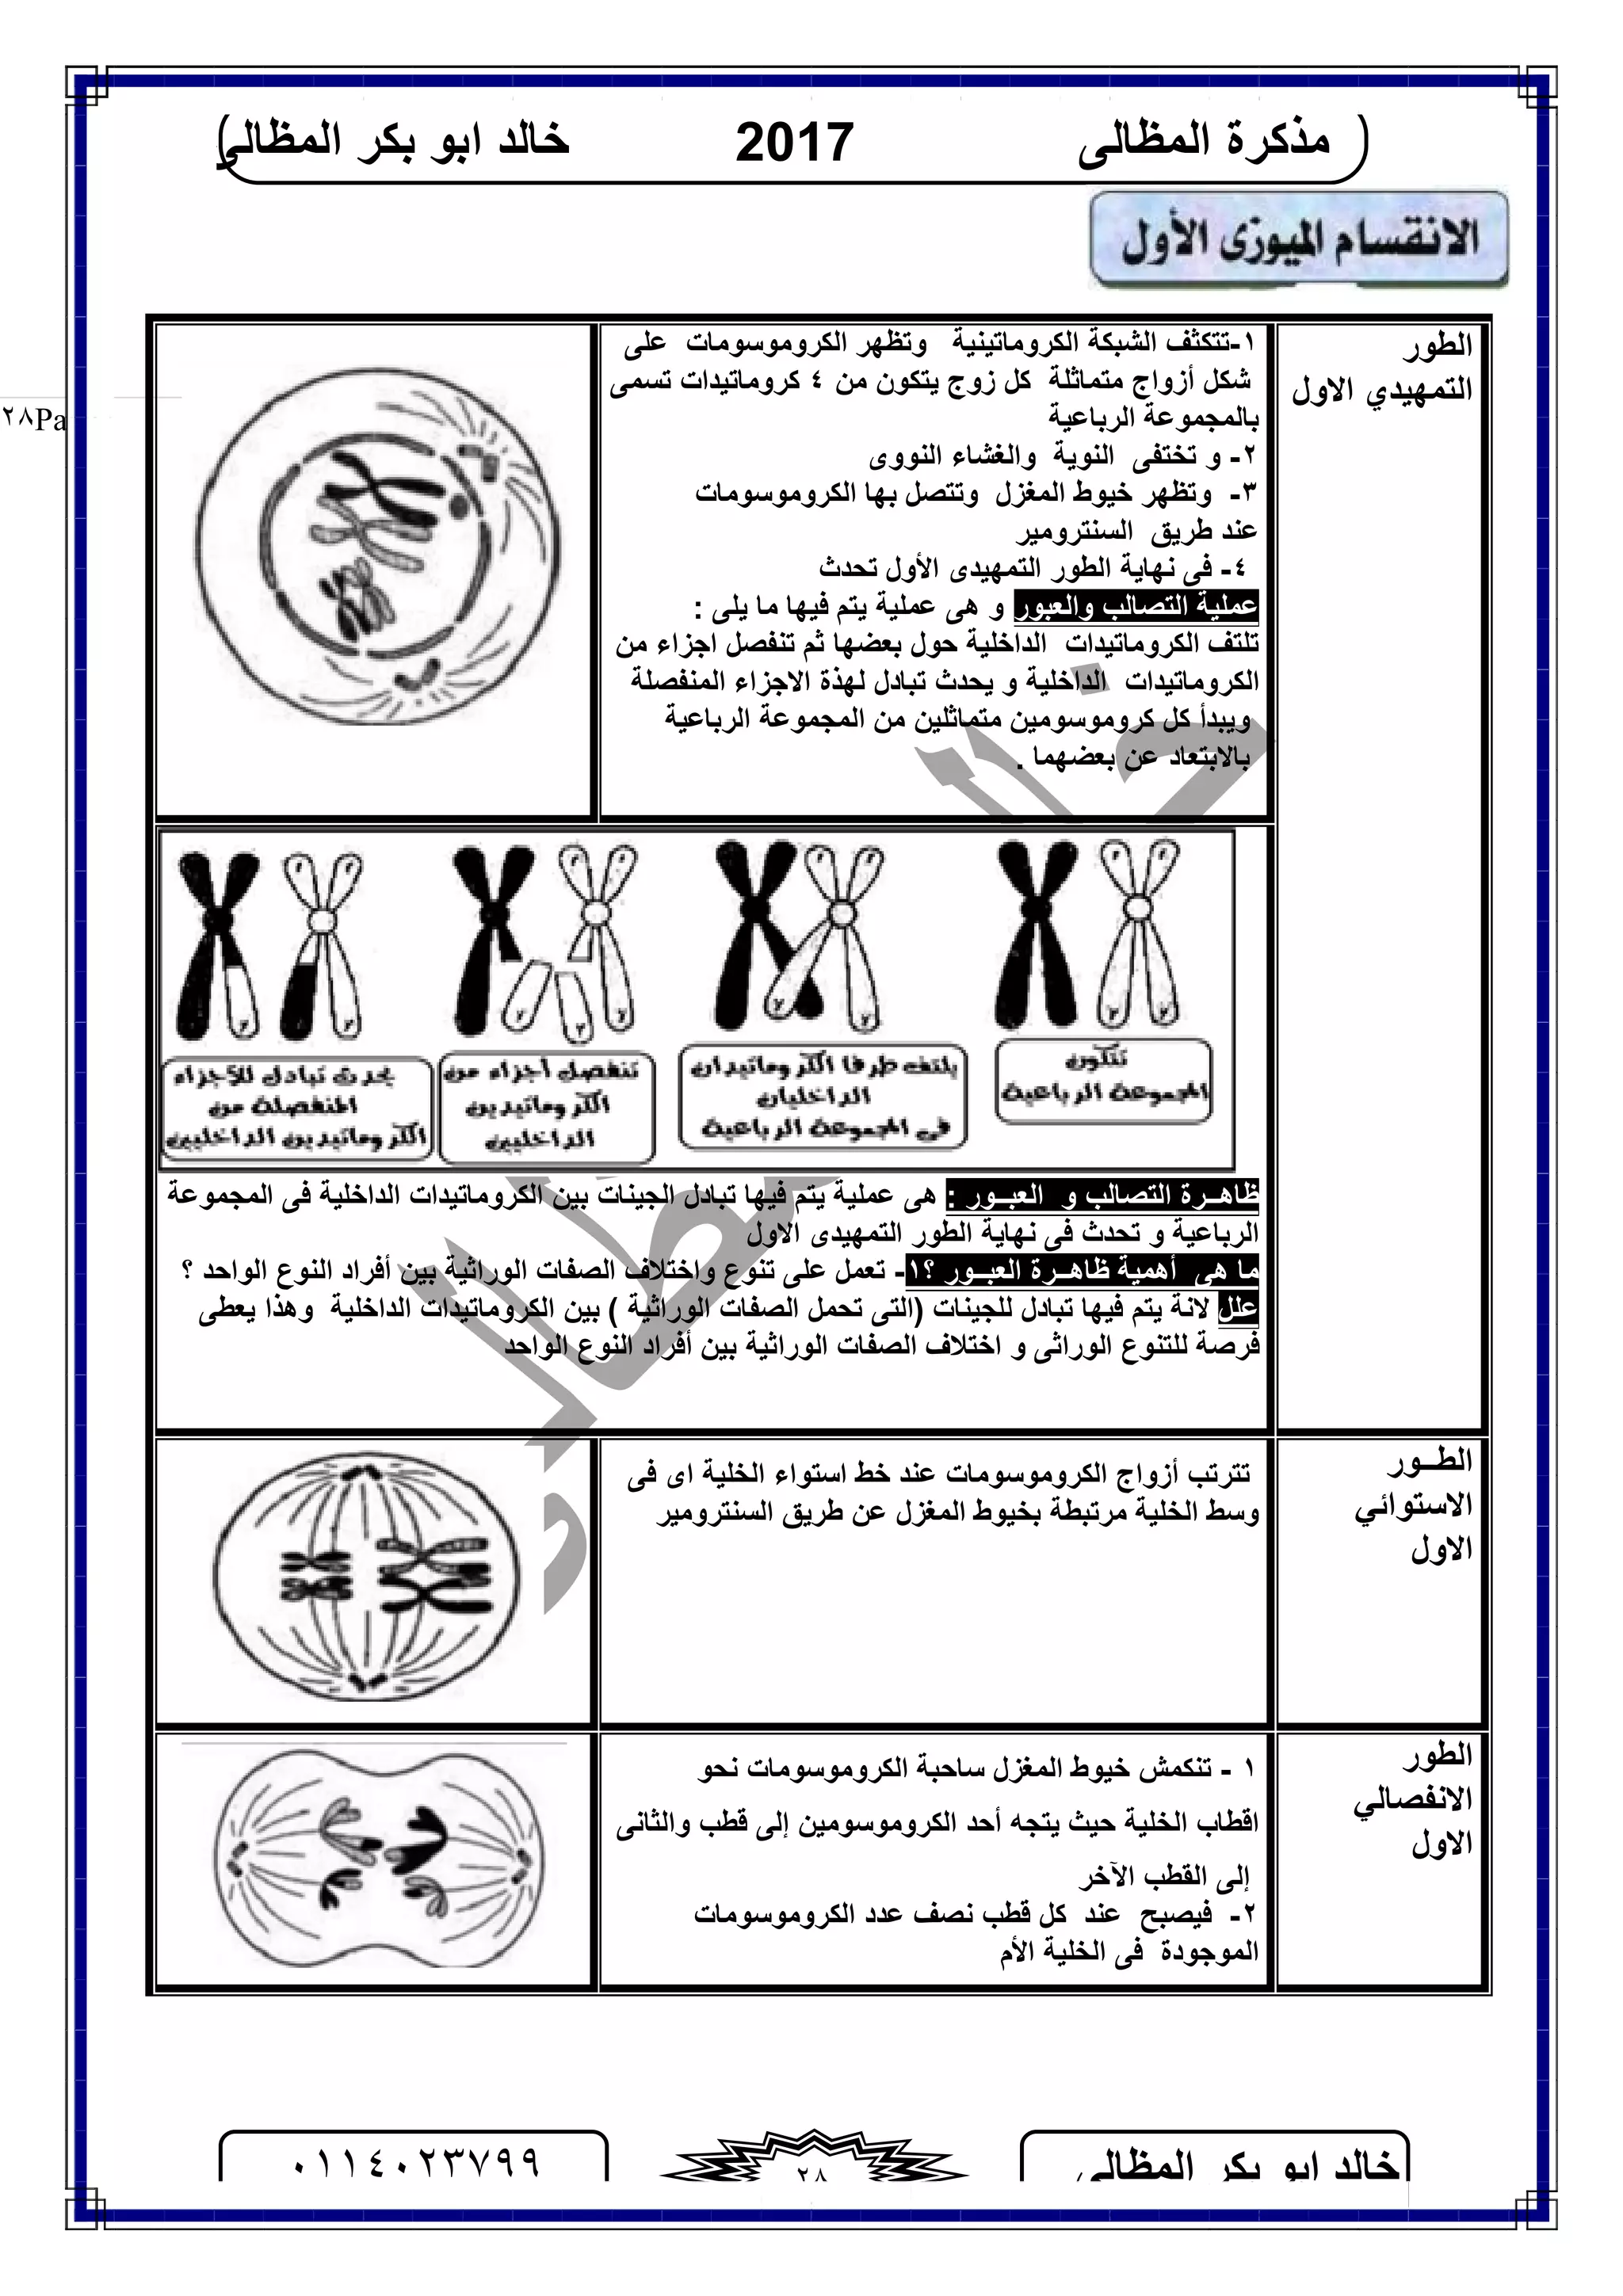 مذكرة المظالى 2017 خالد ابو بكر المظالى
الانقسام الميوزى الأول
٢٨Pa
الطور
التمهيدي الاول
١-تتكثف الشبكة الكروماتينية وتظهر الكروموسومات على
شكل أزواج متماثلة كل زوج يتكون من ٤ كروماتيدات تسمى
بالمجموعة الرباعية
٢- و تختفى النوية والغشاء النووى
٣- وتظهر خيوط المغزل وتتصل بها الكروموسومات
عند طريق السنترومير
٤- فى نهاية الطور التمهيدى الأول تحدث
عملية التصالب والعبور و هى عملية يتم فيها ما يلى :
تلتف الكروماتيدات الداخلية حول بعضها ثم تنفصل اجزاء من
الكروماتيدات الداخلية و يحدث تبادل لهذة الاجزاء المنفصلة
ويبدأ كل كروموسومين متماثلين من المجموعة الرباعية
بالابتعاد عن بعضهما .
تتكون
المجموعة الرباعية
يلتف طرفا الكروماتيدان
الداخليان
فى المجموعة الرباعية
تنفصل أجزاء من
الكروماتيدين
الداخليين
يحدث تبادل للأجزاء
المنفصلة من
الكروماتيدين الداخليين
ظاهــرة التصالب و العبــور : هى عملية يتم فيها تبادل الجينات بين الكروماتيدات الداخلية فى المجموعة
الرباعية و تحدث فى نهاية الطور التمهيدى الاول
ما هى أهمية ظاهــرة العبــور ؟١- تعمل على تنوع واختلاف الصفات الوراثية بين أفراد النوع الواحد ؟
علل لانة يتم فيها تبادل للجينات (التى تحمل الصفات الوراثية ) بين الكروماتيدات الداخلية وهذا يعطى
فرصة للتنوع الوراثى و اختلاف الصفات الوراثية بين أفراد النوع الواحد
الطــور
الاستوائي
الاول
تترتب أزواج الكروموسومات عند خط استواء الخلية اى فى
وسط الخلية مرتبطة بخيوط المغزل عن طريق السنترومير
الطور
الانفصالي
الاول
١ - تنكمش خيوط المغزل ساحبة الكروموسومات نحو
اقطاب الخلية حيث يتجه أحد الكروموسومين إلى قطب والثانى
إلى القطب الآخر
٢- فيصبح عند كل قطب نصف عدد الكروموسومات
الموجودة فى الخلية الأم
خالد ابو بكر المظالى
٢٨
٠١١٤٠٢٣٧٩٩